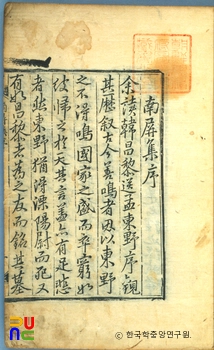 南屛集序
余讀韓昌黎送孟東野序觀
其歷叙古今善鳴者因以東野
之不得鳴國家之盛而卒窮如
彼歸之於天其言盖亦有足悲
者然東野猶得溧陽尉而死又
有如昌黎者爲之友而銘其墓
한국학중앙연구원.